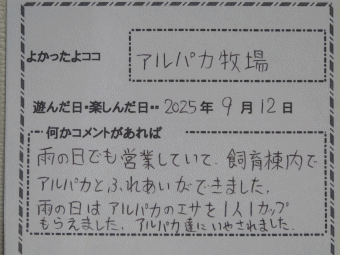 よかったよココ
アルパカ牧場
遊んだ日・楽しんだ日・・ 2025年 9月 12日
何かコメントがあれば
雨の日でも営業していて、飼育棟内で
アルパカとふれあいができました。
雨の日はアルパカのエサを1人1カップ
もらえました。アルパカ達にいやされました。